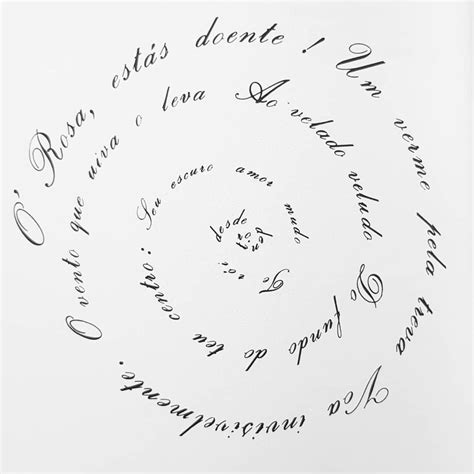 O' Rosa, estás doente !
Um verme pela treva
Voa invisivelmente.
O vento que uiva o leva
Ao velado veludo
Do fundo do teu centro:
Seu escuro amor mudo
Te rói desde dentro